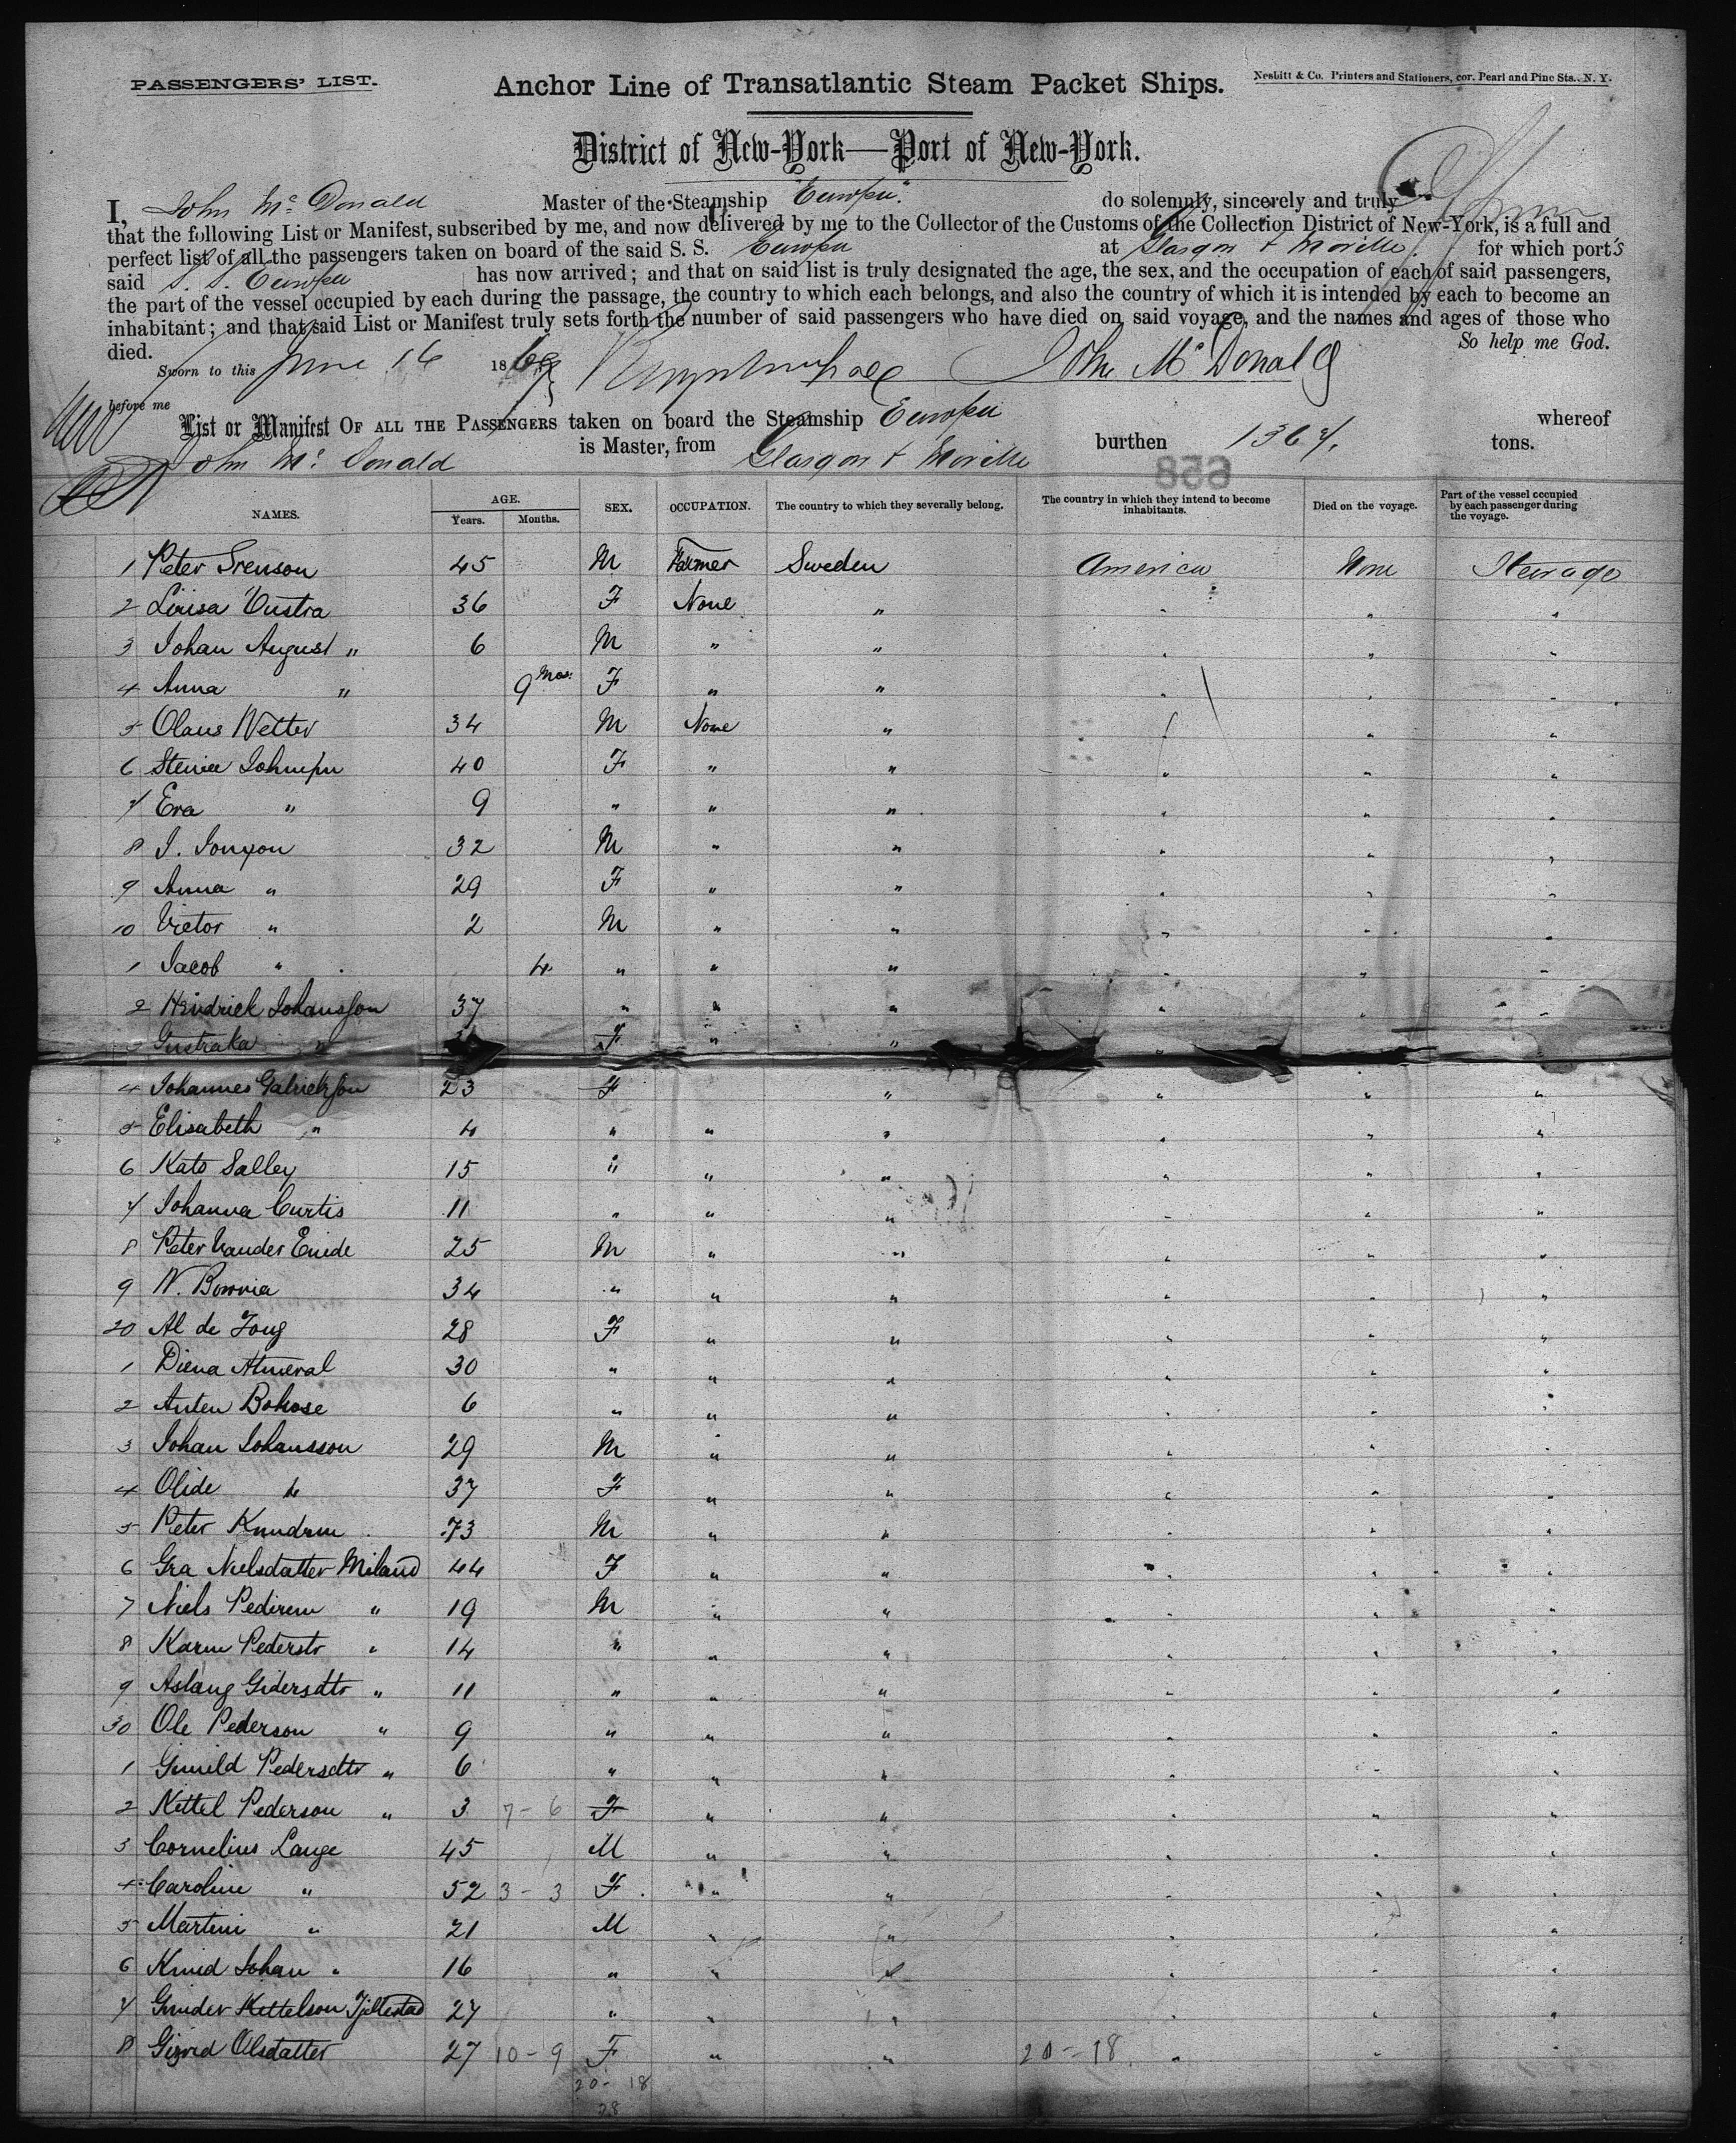 PASSENGERS' LIST.
Anchor Line of Transatlantic Steam Packet Ships.
Nesbitt & Co. Printers and Stationers, cor. Pearl and Pine Sts., N. Y.
District of New-York—Port of New-York.
I, John Mc Donald Master of the Steamship "Europa". do solemnly, sincerely and truly
that the following List or Manifest, subscribed by me, and now delivered by me to the Collector of the Customs of the Collection District of New-York, is a full and
perfect list of all the passengers taken on board of the said S. S. Europa at Glasgow & Moville. for which port's
said S. S. Europa has now arrived; and that on said list is truly designated the age, the sex, and the occupation of each of said passengers,
the part of the vessel occupied by each during the passage, the country to which each belongs, and also the country of which it is intended by each to become an
inhabitant; and that said List or Manifest truly sets forth the number of said passengers who have died on said voyage, and the names and ages of those who
died. So help me God.
Sworn to this June 16 1869 John Mc Donald
before me
List or Manifest OF ALL THE PASSENGERS taken on board the Steamship Europa whereof
John Mc Donald is Master, from Glasgow & Moville burthen 1364. tons.
658
NAMES. AGE. Years. Months. SEX. OCCUPATION. The country to which they severally belong. The country in which they intend to become inhabitants. Died on the voyage. Part of the vessel occupied by each passenger during the voyage.
1 Peter Srenson 45 M Farmer Sweden America None Steerage
2 Lovisa Gustra 36 F None " " " "
3 Johan August " 6 M " " " " "
4 Anna " 9 Mos: F " " " " "
5 Olaus Wetter 34 M None " " " "
6 Stenia 40 F " " " " "
7 Eva " 9 " " " " " "
8 J. Jonsson 32 M " " " " "
9 Anna " 29 F " " " " "
10 Victor " 2 M " " " " "
1 Jacob " 4 " " " " " "
2 Hendrick Johansson 37 " " " " " "
3 Gustraka " F " " " "
4 Johannes Gabrickson 23 F " " " "
5 Elisabeth " 4 " " " " " "
6 Kate Salley 15 " " " " " "
7 Johanna Curtis 11 " " " " " "
8 Peter Vander Enide 25 M " " " " "
9 W. Bownia 34 " " " " " "
20 Al de Jong 28 F " " " " "
1 Diena Atmeral 30 " " " " " "
2 Anten Bohose 6 " " " " " "
3 Johan Johansson 29 M " " " " "
4 Olide do 37 F " " " " "
5 Peter Knudsen 73 M " " " " "
6 Gra Nielsdatter Miland 44 F " " " " "
7 Niels Pedersen " 19 M " " " " "
8 Karen Pederstr " 14 " " " " " "
9 Aslaug Gidersdtr " 11 " " " " " "
30 Ole Pederson " 9 " " " " " "
1 Gunild Pedersdtr " 6 " " " " " "
2 Kittel Pederson " 3 7-6 F " " " " "
3 Cornelius Lange 45 M " " " " "
4 Caroline " 52 3-3 F " " " " "
5 Martini " 21 M " " " " "
6 Knud Johan " 16 " " " " " "
7 Gunder Kettelson Tjillestad 27 " " " " " "
8 Gigred Olsdatter 27 10-9 F " " 20-18 " " "
20-18
28